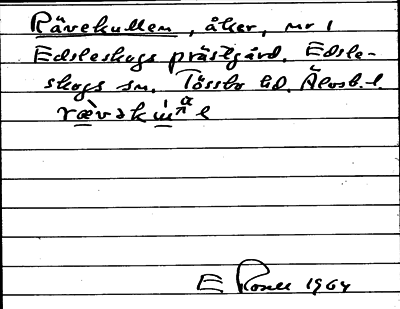 Rävekullen, åker, nr 1
Edsleskogs prästgård. Edsle-
skogs sn. Tössbo hd. Älvsb. l.
E Rosell 1964